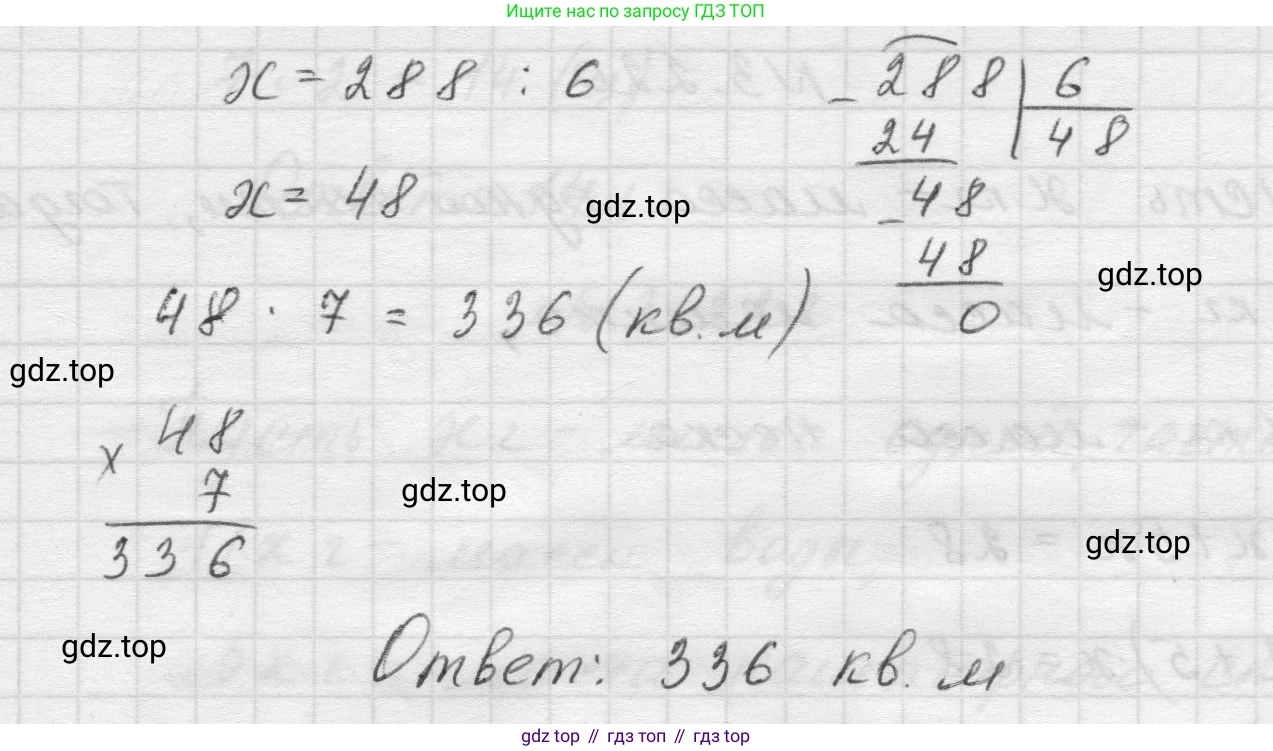 Ищите нас по запросу ГДЗ ТОП
x = 288 : 6
- 288 | 6
24 48
x = 48
gdz.top
- 48
48
0
gdz.top
48 · 7 = 336 (кв. м)
gdz.top
x 48
7
336
gdz.top
gdz.top
gdz.top
Ответ: 336 кв. м
gdz top // гдз топ // гдз top